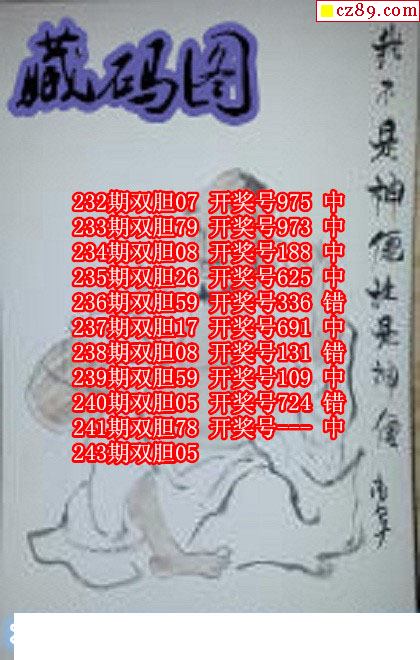 cz89.com
藏码图
232期双胆07 开奖号975 中
233期双胆79 开奖号973 中
234期双胆08 开奖号188 中
235期双胆26 开奖号625 中
236期双胆59 开奖号336 错
237期双胆17 开奖号691 中
238期双胆08 开奖号131 错
239期双胆59 开奖号109 中
240期双胆05 开奖号724 错
241期双胆78 开奖号--- 中
243期双胆05
我不是神
是神